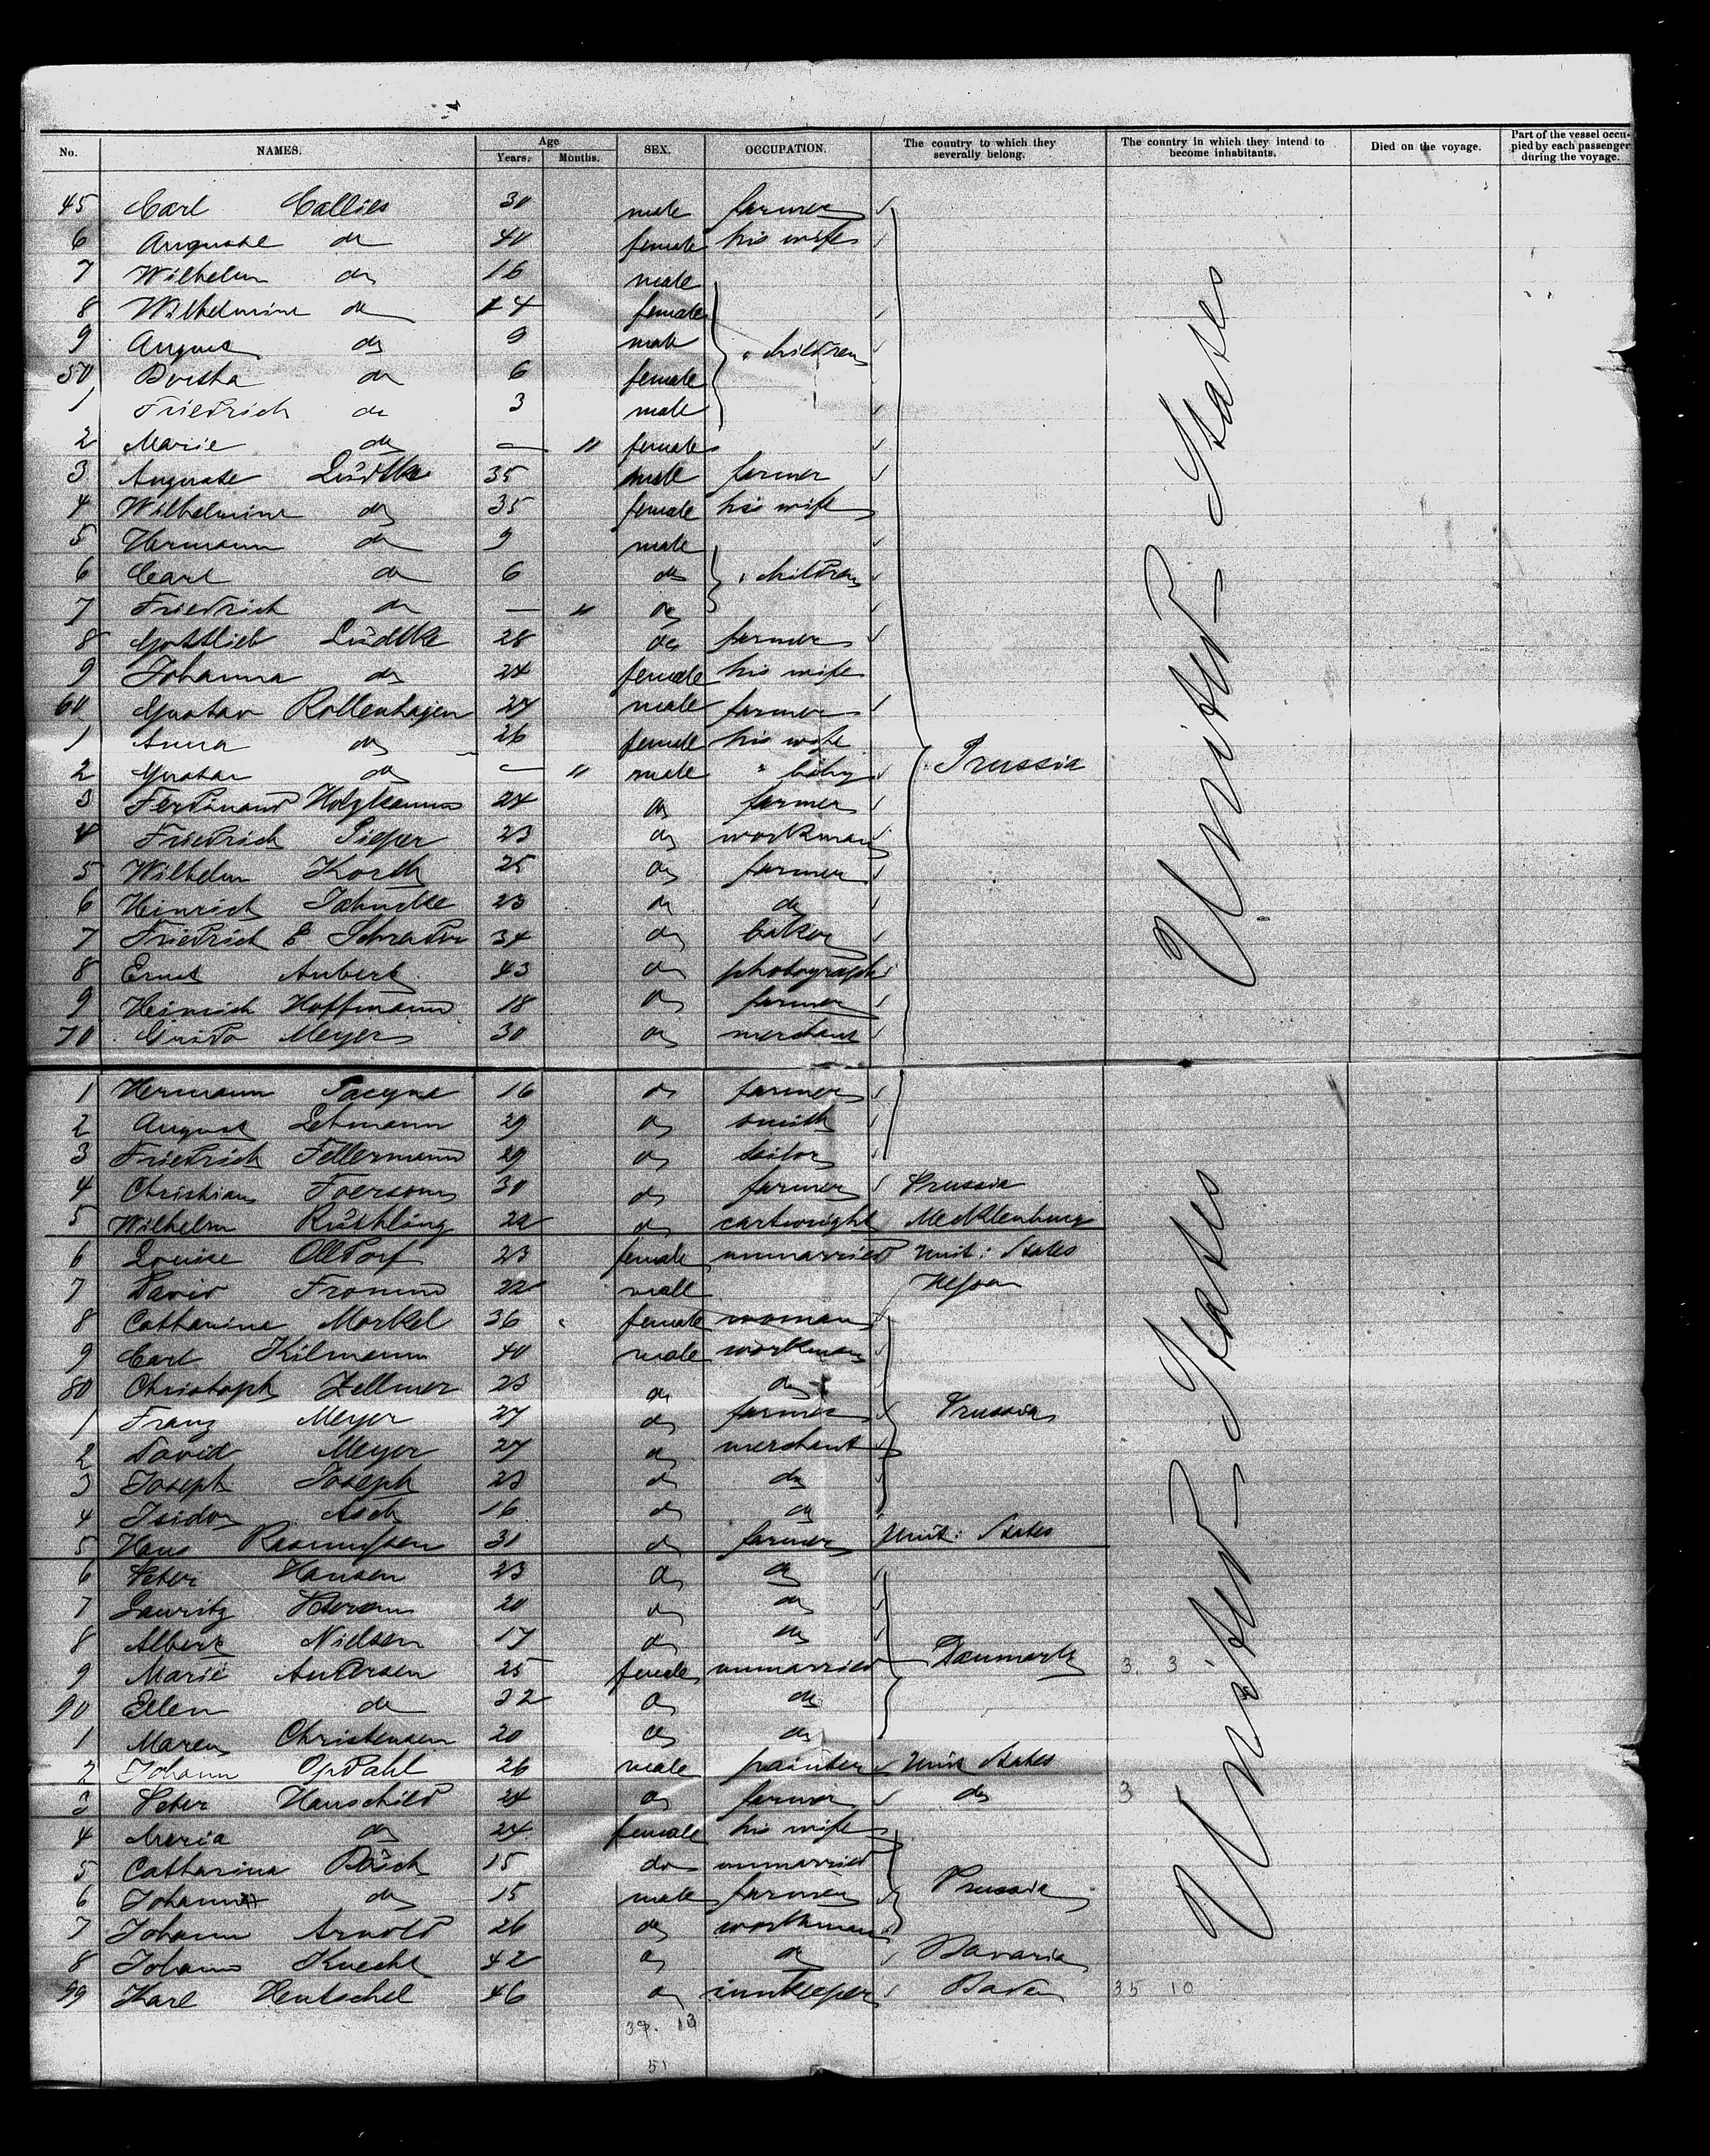 No. NAMES. Age Years. Months. SEX. OCCUPATION. The country to which they severally belong. The country in which they intend to become inhabitants. Died on the voyage. Part of the vessel occupied by each passenger during the voyage.
45 Carl Callies 30 male farmer
6 Auguste do 40 female his wife
7 Wilhelm do 16 male
8 Wilhelmine do 14 female
9 August do 9 male " children
50 do 6 female
1 Friedrich do 3 male
2 Marie do — " female
3 Auguste Lüdtke 35 male farmer
4 Wilhelmine do 35 female his wife
5 Hermann do 9 male
6 Carl do 6 do " children
7 Friedrich do — " do
8 Gottlieb Lüdtke 28 do farmer
9 Johanna do 24 female his wife
60 Gustav Rollenhagen 27 male farmer
1 Anna do 26 female his wife
2 Gustav do — " male " baby Prussia United States
3 Ferdinand Holzkamm 24 do farmer
4 Friedrich Pieper 23 do workman
5 Wilhelm Korth 25 do farmer
6 Heinrich 23 do do
7 Friedrich E Schrader 34 do baker
8 Ernst Aubert 43 do photograph
9 Heinrich Hoffmann 18 do farmer
70 Guido Meyer 30 do merchant
1 Hermann 16 do farmer
2 August Lehmann 29 do smith
3 Friedrich Fellermann 29 do tailor
4 Christian 30 do farmer Prussia
5 Wilhelm 22 do cartwright Mecklenburg
6 Louise Olldorf 23 female unmarried Unit: States
7 David Fromm 22 male Hessen
8 Catharina Morkel 36 female woman
9 Carl Kilmann 40 male workman
80 Christoph Zellmer 23 do do
1 Franz Meyer 27 do farmer Prussia
2 David Meyer 27 do merchant
3 Joseph Joseph 23 do do
4 Isidor Asch 16 do do
5 Hans Rasmussen 31 do farmer Unit: States
6 Peter Hansen 23 do do
7 Lauritz 20 do do
8 Albert Nielsen 17 do do
9 Marie Andersen 25 female unmarried Danmark 3. 3 United States
90 Ellen do 22 do do
1 Maren Christensen 20 do do
2 Johann Opdahl 26 male painter Unit States
3 Peter Hanschild 24 do farmer do 3 1
4 Maria do 24 female his wife
5 Catharina Büsch 15 do unmarried
6 Johann do 15 male farmer Prussia
7 Johann Arnold 26 do workman
8 Johann Knecht 42 do do Bavaria
99 Karl Hentschel 46 do innkeeper Baden 35 10
39. 13
51